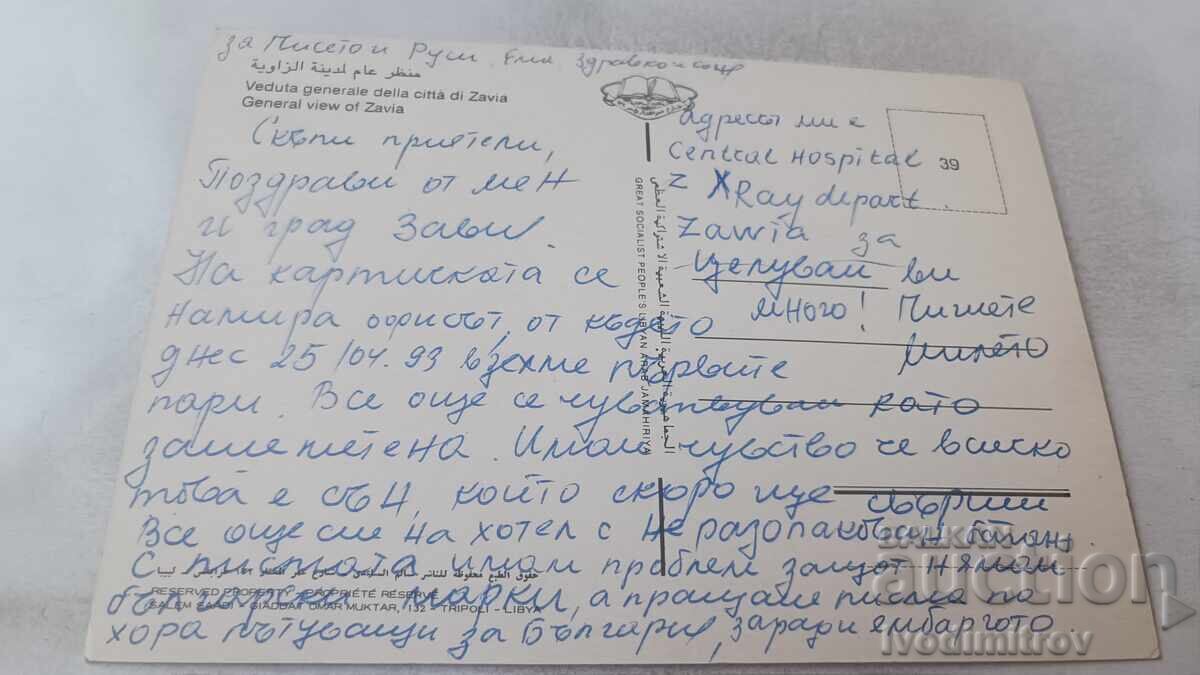 за Писето и Руси, Емил, Здравко и сонр
منظر عام لمدينة الزاوية
Veduta generale della città di Zavia
General view of Zavia
Скъпи приятели,
Поздрави от мен
и град Зави.
На картичката се
намира офисът, от където
днес 25/04.93 взехме първите
пари. Все още се чувствувам като
замаетена. Имам чувство че всичко
това е сън, който скоро ще свърши
Все още сме на хотел с неразопакован багаж
С писмата имам проблем защот нямам
български марки, а пращаме писма по
хора пътуващи за България, заради ембаргото.
Адресът ми е
Central Hospital
Z X Ray depart.
Zawia за
Целувам ви
много! Пишете
Милето
39
الجماهيرية العربية الليبية الشعبية الاشتراكية العظمى
GREAT SOCIALIST PEOPLE'S LIBYAN ARAB JAMAHIRIYA
حقوق الطبع محفوظة للناشر
RESERVED PROPERTY - PROPRIÉTÉ RÉSERVÉ
SALEM SAADI - GIADDAT OMAR MUKTAR, 132 - TRIPOLI - LIBYA
auction
ivodimitrov